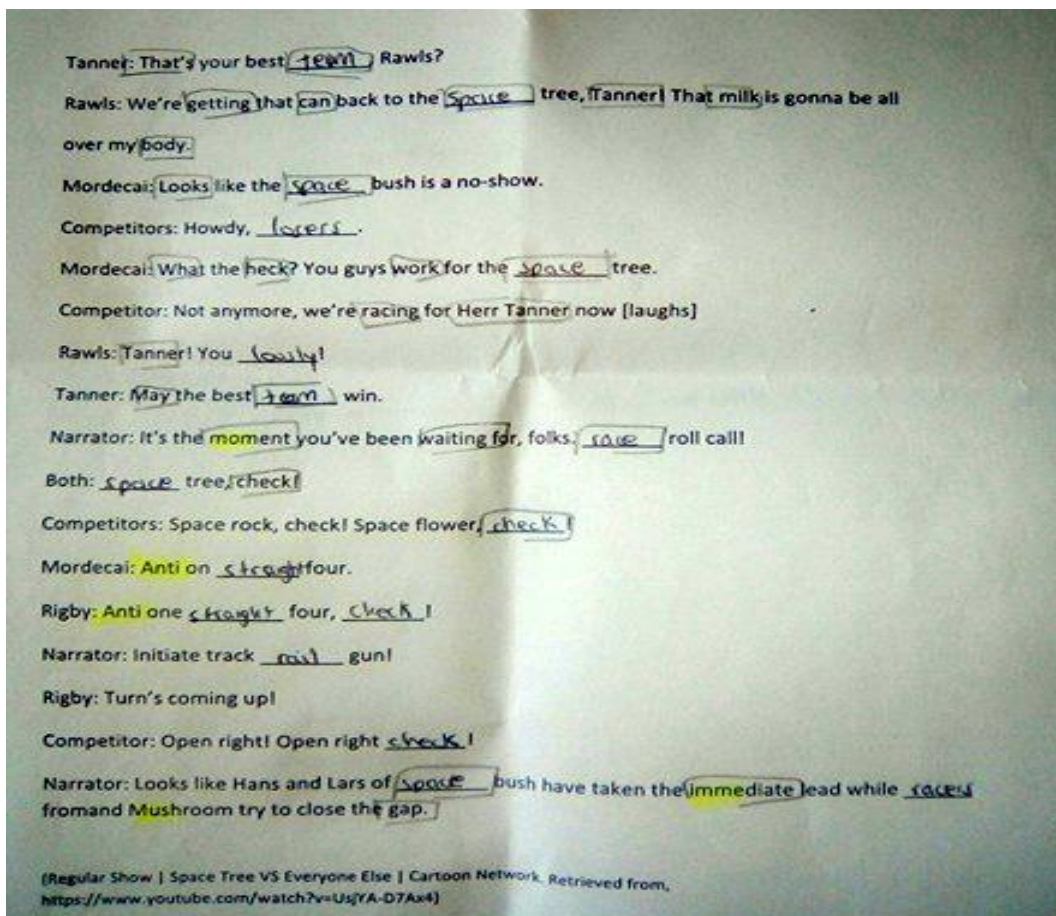 Tanner: That's your best team, Rawls?
Rawls: We're getting that can back to the space tree, Tanner! That milk is gonna be all
over my body.
Mordecai: Looks like the space bush is a no-show.
Competitors: Howdy, losers.
Mordecai: What the heck? You guys work for the space tree.
Competitor: Not anymore, we're racing for Herr Tanner now [laughs]
Rawls: Tanner! You lously!
Tanner: May the best team win.
Narrator: It's the moment you've been waiting for, folks, race roll call!
Both: space tree, check!
Competitors: Space rock, check! Space flower, check!
Mordecai: Anti on straight four.
Rigby: Anti one straight four, check!
Narrator: Initiate track rail gun!
Rigby: Turn's coming up!
Competitor: Open right! Open right check!
Narrator: Looks like Hans and Lars of space bush have taken the immediate lead while racers
fromand Mushroom try to close the gap.
(Regular Show | Space Tree VS Everyone Else | Cartoon Network. Retrieved from,
https://www.youtube.com/watch?v=UsjYA-D7Ax4)